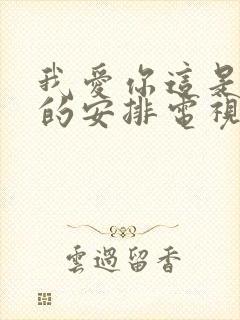 我愛你這是
的安排電視
雲過留香